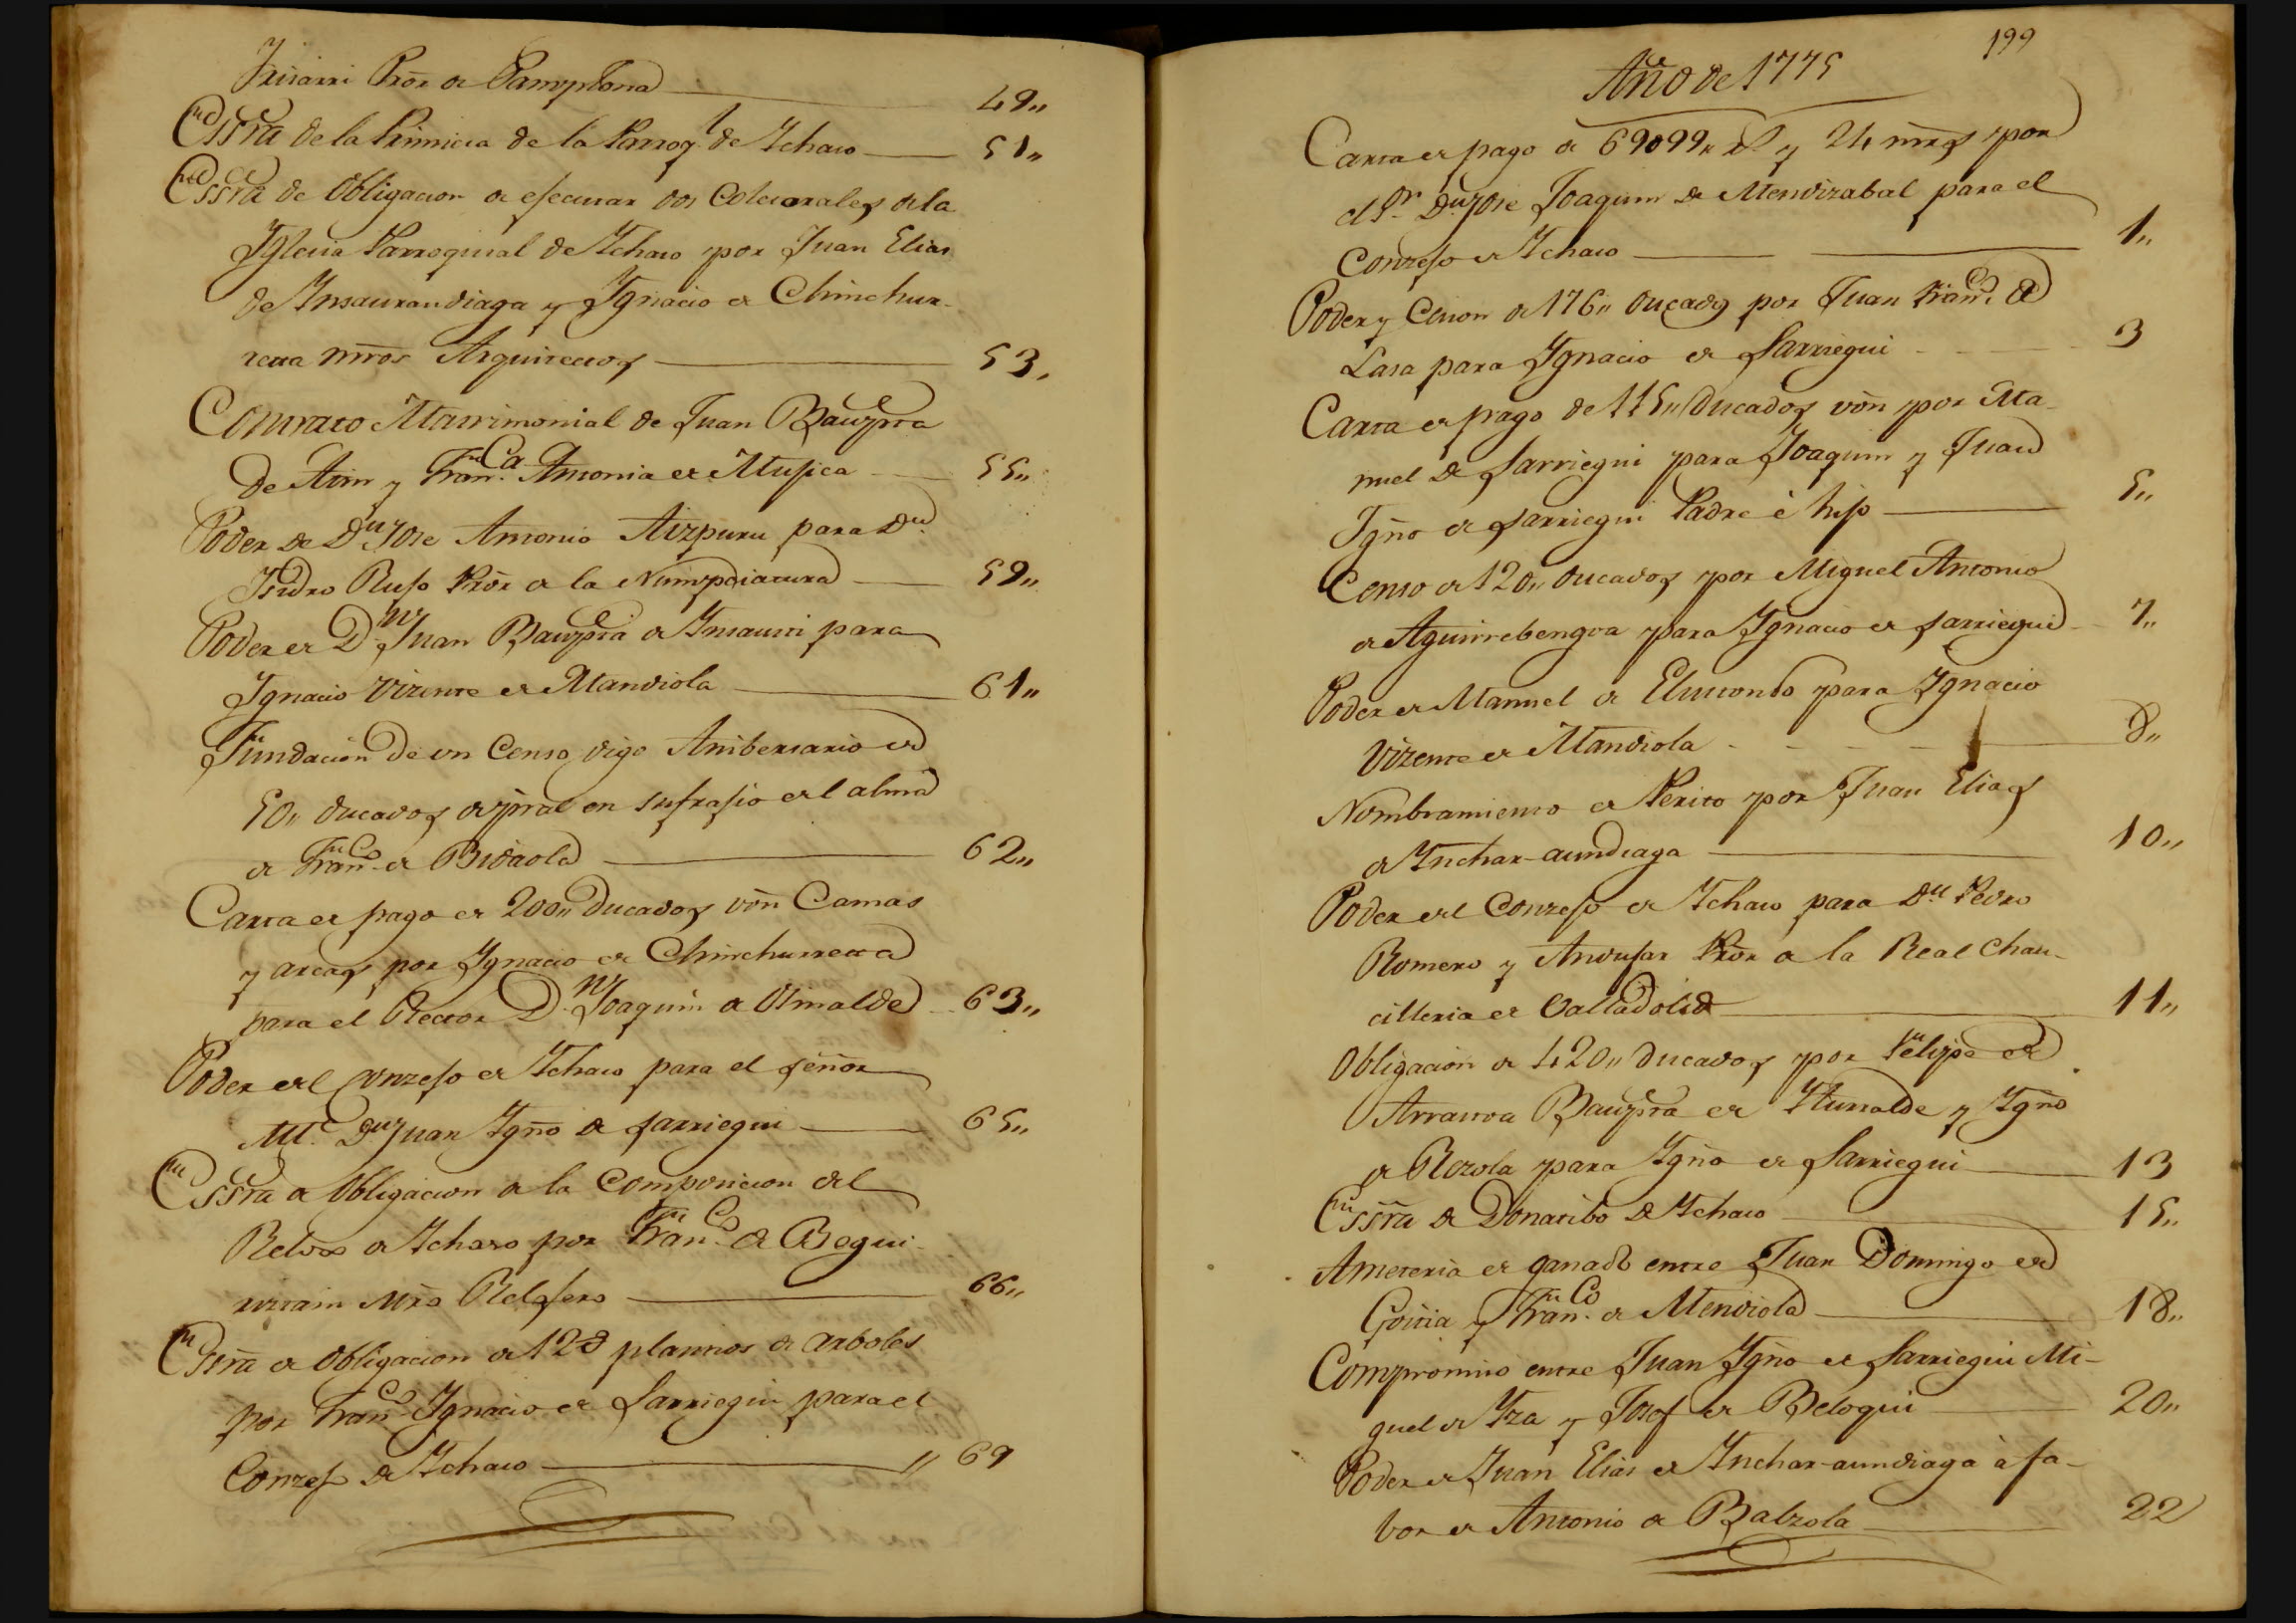 Irisarri Pror de Pamplona 49,,
Essra de la Primicia de la Parroql de Ichaso 51,,
Essra de obligacion de efecutar dos Colecorales de la
Iglesia Parroquial de Ichaso por Juan Elias
de Insaurandiaga y Ignacio de Chinchur-
reta mros Arquitectos 53,
Contrato Matrimonial de Juan Bauptta
de Arin y Franca Antonia de Mujica 55,,
Poder de Dn Jose Antonio Aizpuru para Dn
Isidro Rufo Pror de la Numpciatura 59,,
Poder de Dn Juan Bauptta de Insausti para
Ignacio Vizente de Mandiola 61,,
Fundacion de un Censo digo Anibersario de
50,, ducados de pral en sufrasio del alma
de Franco de Bidaola 62,,
Carta de pago de 200,, Ducados von Camas
y arcas por Ignacio de Chinchurreta
para el Rector Dn Joaquin de Olmalde 63,,
Poder del Conzejo de Ichaso para el señor
Ml Dn Juan Igno de Sarriegui 65,,
Essra de obligacion de la Composicion del
Relox de Ichaso por Franco de Begui-
riztain Mro Relojero 66,,
Essra de obligacion de 12d plantios de arboles
por Franco Ignacio de Sarriegui para el
Conzejo de Ichaso ,, 69
199
Año de 1775
Carta de pago de 69099,, rs y 24 mrs por
el Sr Dn Jose Joaquin de Mendizabal para el
Conzejo de Ichaso 1,,
Poder y Cesion de 176,, ducados por Juan Franco de
Lasa para Ignacio de Sarriegui 3
Carta de pago de 115,, Ducados von por Ma-
nuel de Sarriegui para Joaquin y Juan
Igno de Sarriegui Padre è hijo 5,,
Censo de 120,, ducados por Miguel Antonio
de Aguirrebengoa para Ignacio de Sarriegui 7,,
Poder de Manuel de Elusondo para Ignacio
Vizente de Mandiola 8,,
Nombramiento de Perito por Juan Elias
de Inchaz-aundiaga 10,,
Poder del Conzejo de Ichaso para Dn Pedro
Romero y Andujar Pror de la Real Chan-
cilleria de Valladolid 11,,
Obligacion de 420,, Ducados por Felipe de
Arratoa Bauptta de Iturralde y Igno
de Rezola para Igno de Sarriegui 13
Essra de Donatibo de Ichaso 15,,
Ameteria de ganado entre Juan Domingo de
Goitia y Franco de Mendiola 18,,
Compromiso entre Juan Igno de Sarriegui Mi-
guel de Iza y Josef de Beloqui 20,,
Poder de Juan Elias de Inchaz-aundiaga à fa-
bor de Antonio de Balzola 22